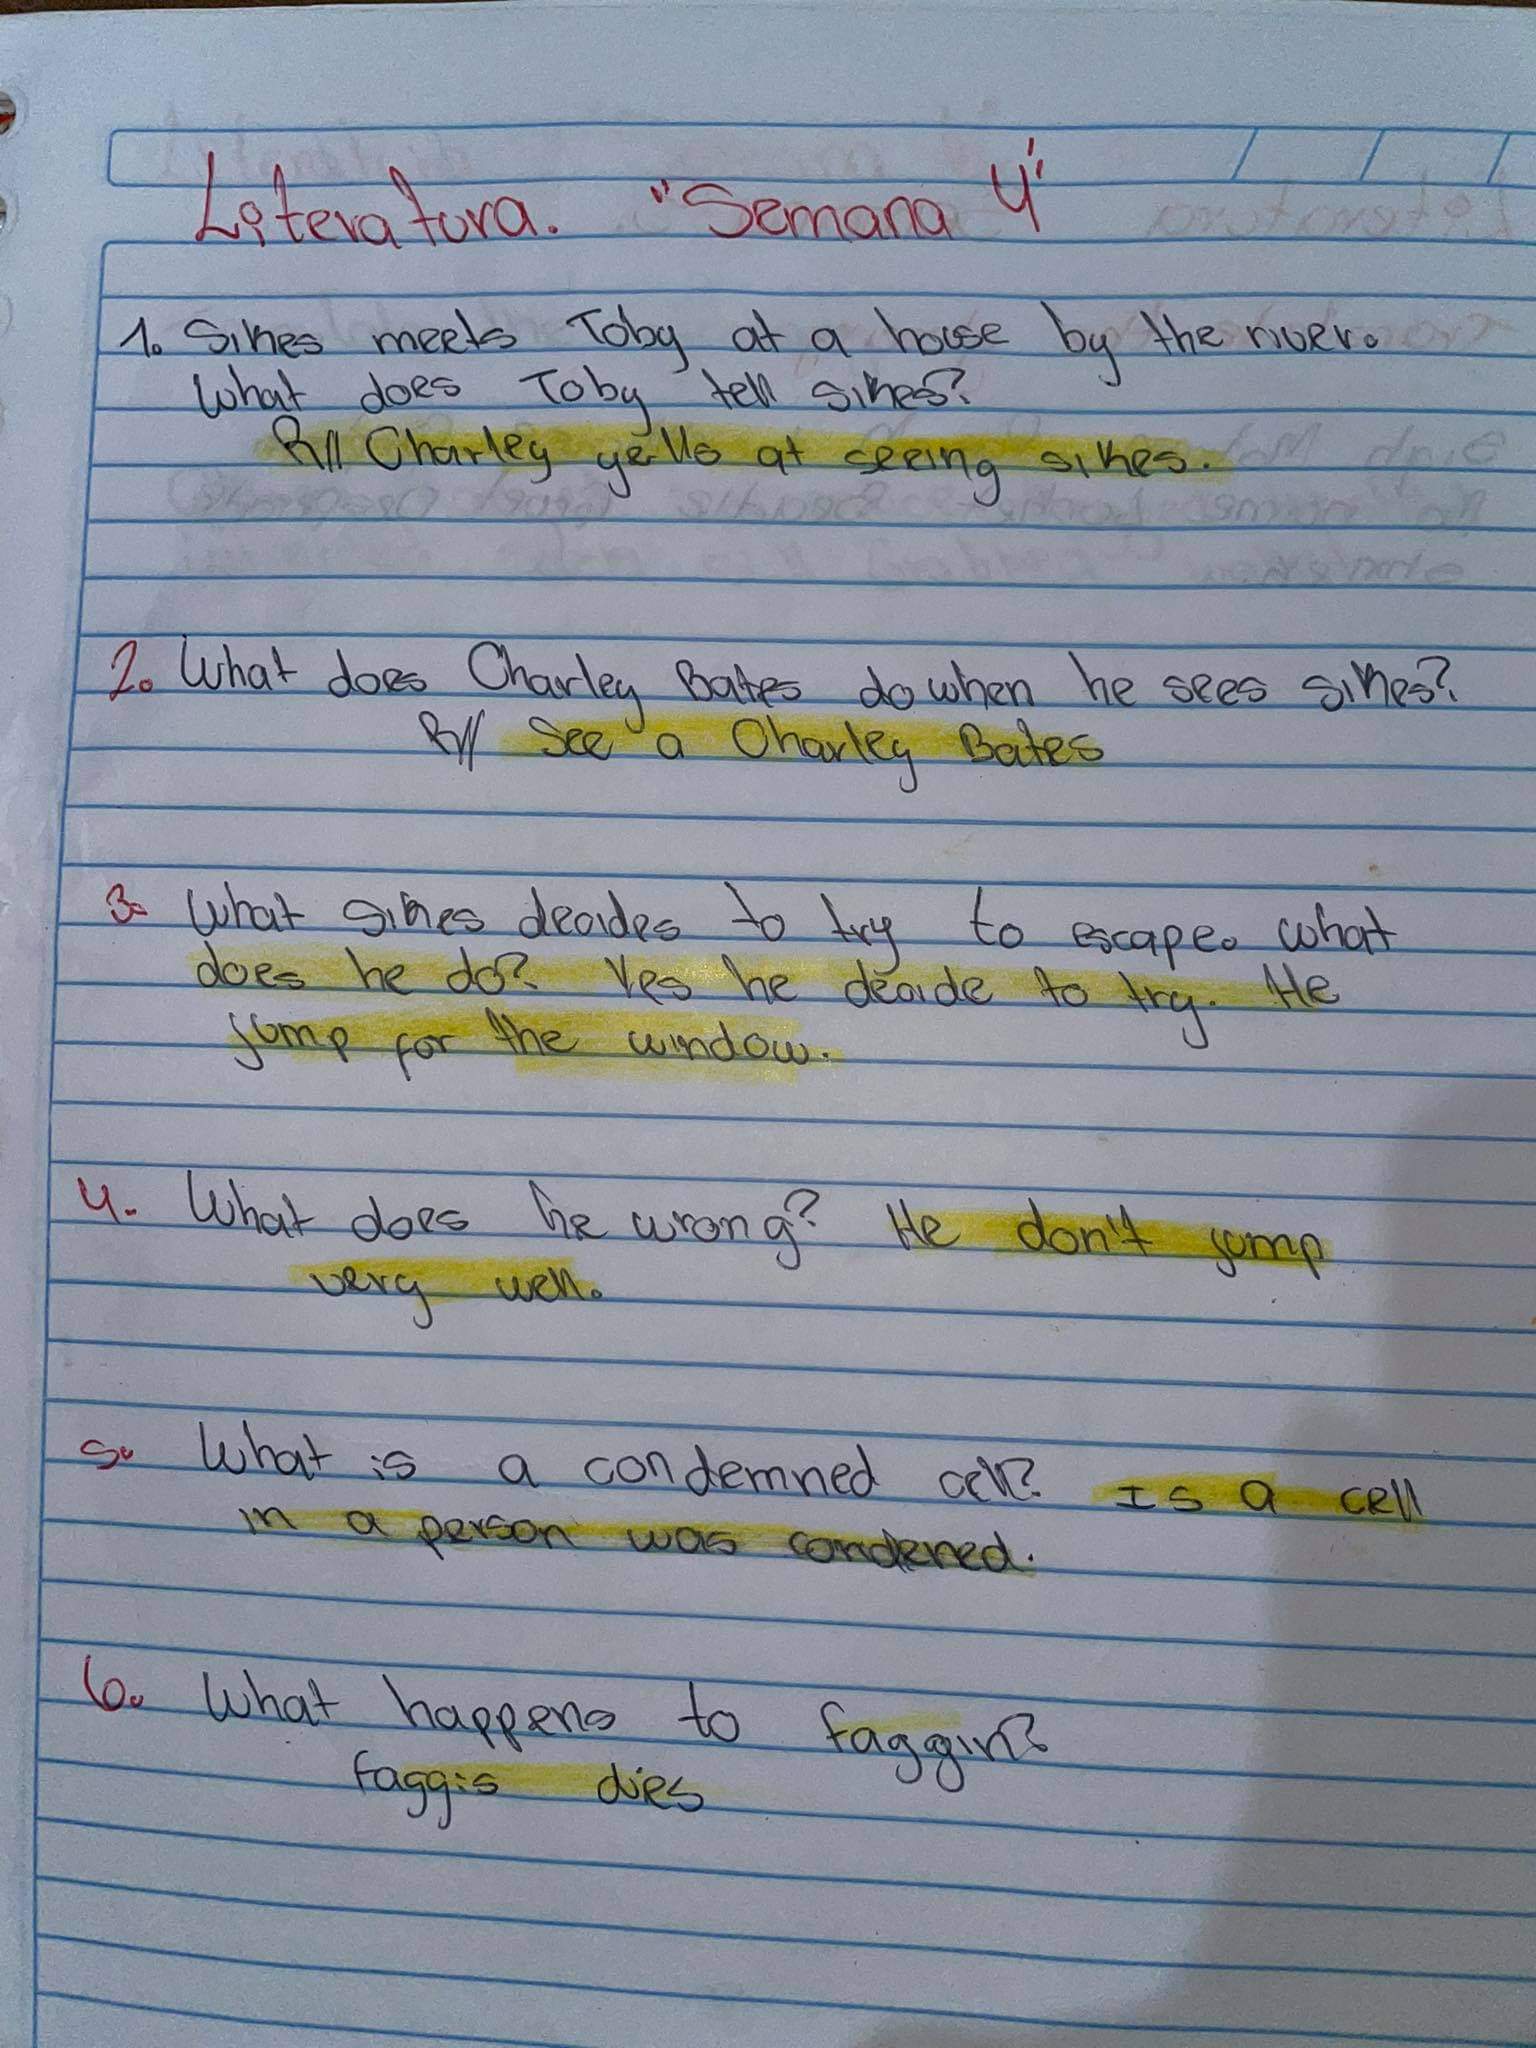 Literatura. "Semana 4"
1. Sikes meets Toby at a house by the river.
What does Toby tell sikes?
R// Charley yells at seeing sikes.
2. What does Charley Bates do when he sees sikes?
R// See a Charley Bates
3. What sikes decides to try to escape. what
does he do? Yes he decide to try. He
jump for the window.
4. What does he wrong? He don't jump
very well.
5. What is a condemned cell? Is a cell
in a person was condened.
6. What happens to faggin?
faggis dies